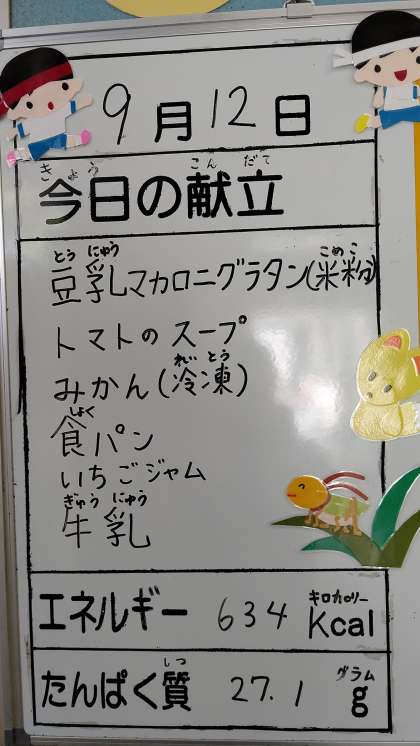 9月12日
きょう こんだて
今日の献立
とうにゅう こめこ
豆乳マカロニグラタン(米粉)
トマトのスープ
れいとう
みかん(冷凍)
しょく
食パン
いちごジャム
ぎゅうにゅう
牛乳
キロカロリー
エネルギー 634 Kcal
しつ グラム
たんぱく質 27.1 g